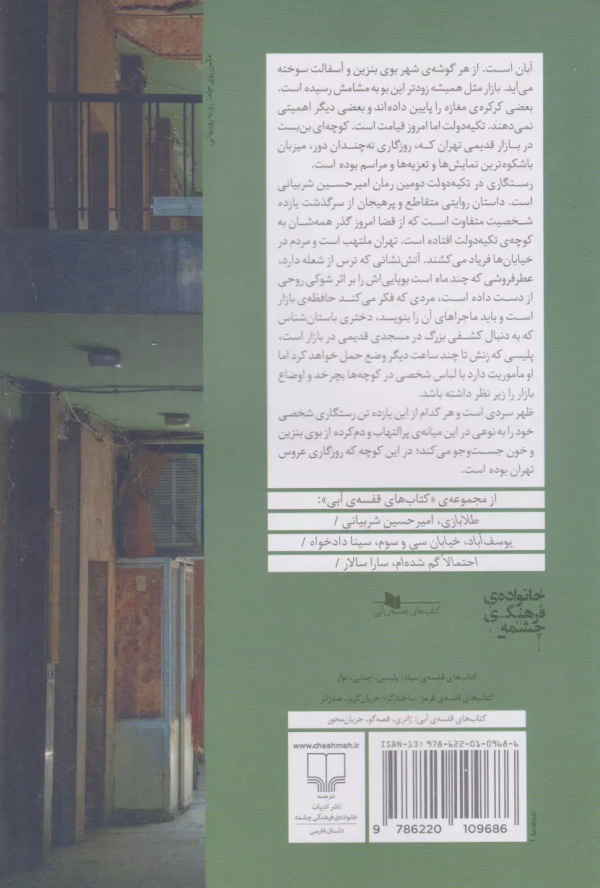 آبان است. از هر گوشه‌ی شهر بوی بنزین و آسفالت سوخته
می‌آید. بازار مثل همیشه زودتر این بو به مشامش رسیده است.
بعضی کرکره‌ی مغازه را پایین داده‌اند و بعضی دیگر اهمیتی
نمی‌دهند. تکیه‌دولت اما امروز قیامت است. کوچه‌ای بن‌بست
در بازار قدیمی تهران که، روزگاری نه‌چندان دور، میزبان
باشکوه‌ترین نمایش‌ها و تعزیه‌ها و مراسم بوده است.
رستگاری در تکیه‌دولت دومین رمان امیرحسین شربیانی
است. داستان روایتی متقاطع و پرهیجان از سرگذشت یازده
شخصیت متفاوت است که از قضا امروز گذر همه‌شان به
کوچه‌ی تکیه‌دولت افتاده است. تهران ملتهب است و مردم در
خیابان‌ها فریاد می‌کشند. آتش‌نشانی که ترس از شعله دارد،
عطرفروشی که چند ماه است بویایی‌اش را بر اثر شوکی روحی
از دست داده است، مردی که فکر می‌کند حافظه‌ی بازار
است و باید ماجراهای آن را بنویسد، دختری باستان‌شناس
که به دنبال کشفی بزرگ در مسجدی قدیمی در بازار است،
پلیسی که زنش تا چند ساعت دیگر وضع حمل خواهد کرد اما
او مأموریت دارد با لباس شخصی در کوچه‌ها بچرخد و اوضاع
بازار را زیر نظر داشته باشد.
ظهر سردی است و هر کدام از این یازده تن رستگاری شخصی
خود را به نوعی در این میانه‌ی پرالتهاب و دم‌کرده از بوی بنزین
و خون جست‌وجو می‌کند؛ در این کوچه که روزگاری عروس
تهران بوده است.
از مجموعه‌ی «کتاب‌های قفسه‌ی آبی»:
طلابازی، امیرحسین شربیانی /
یوسف‌آباد، خیابان سی و سوم، سینا دادخواه /
احتمالاً گم شده‌ام، سارا سالار /
خانواده‌ی
فرهنگی
چشمه
کتاب‌های قفسه‌ی آبی
کتاب‌های قفسه‌ی سیاه: پلیسی، جنایی، نوآر
کتاب‌های قفسه‌ی قرمز: ساختارگرا، جریان‌گریز، ضدژانر
کتاب‌های قفسه‌ی آبی: ژانری، قصه‌گو، جریان‌محور
www.cheshmeh.ir
نشر چشمه
ناشر ادبیات
خانواده‌ی فرهنگی چشمه
داستان فارسی
ISBN-13: 978-622-01-0968-6
9 786220 109686